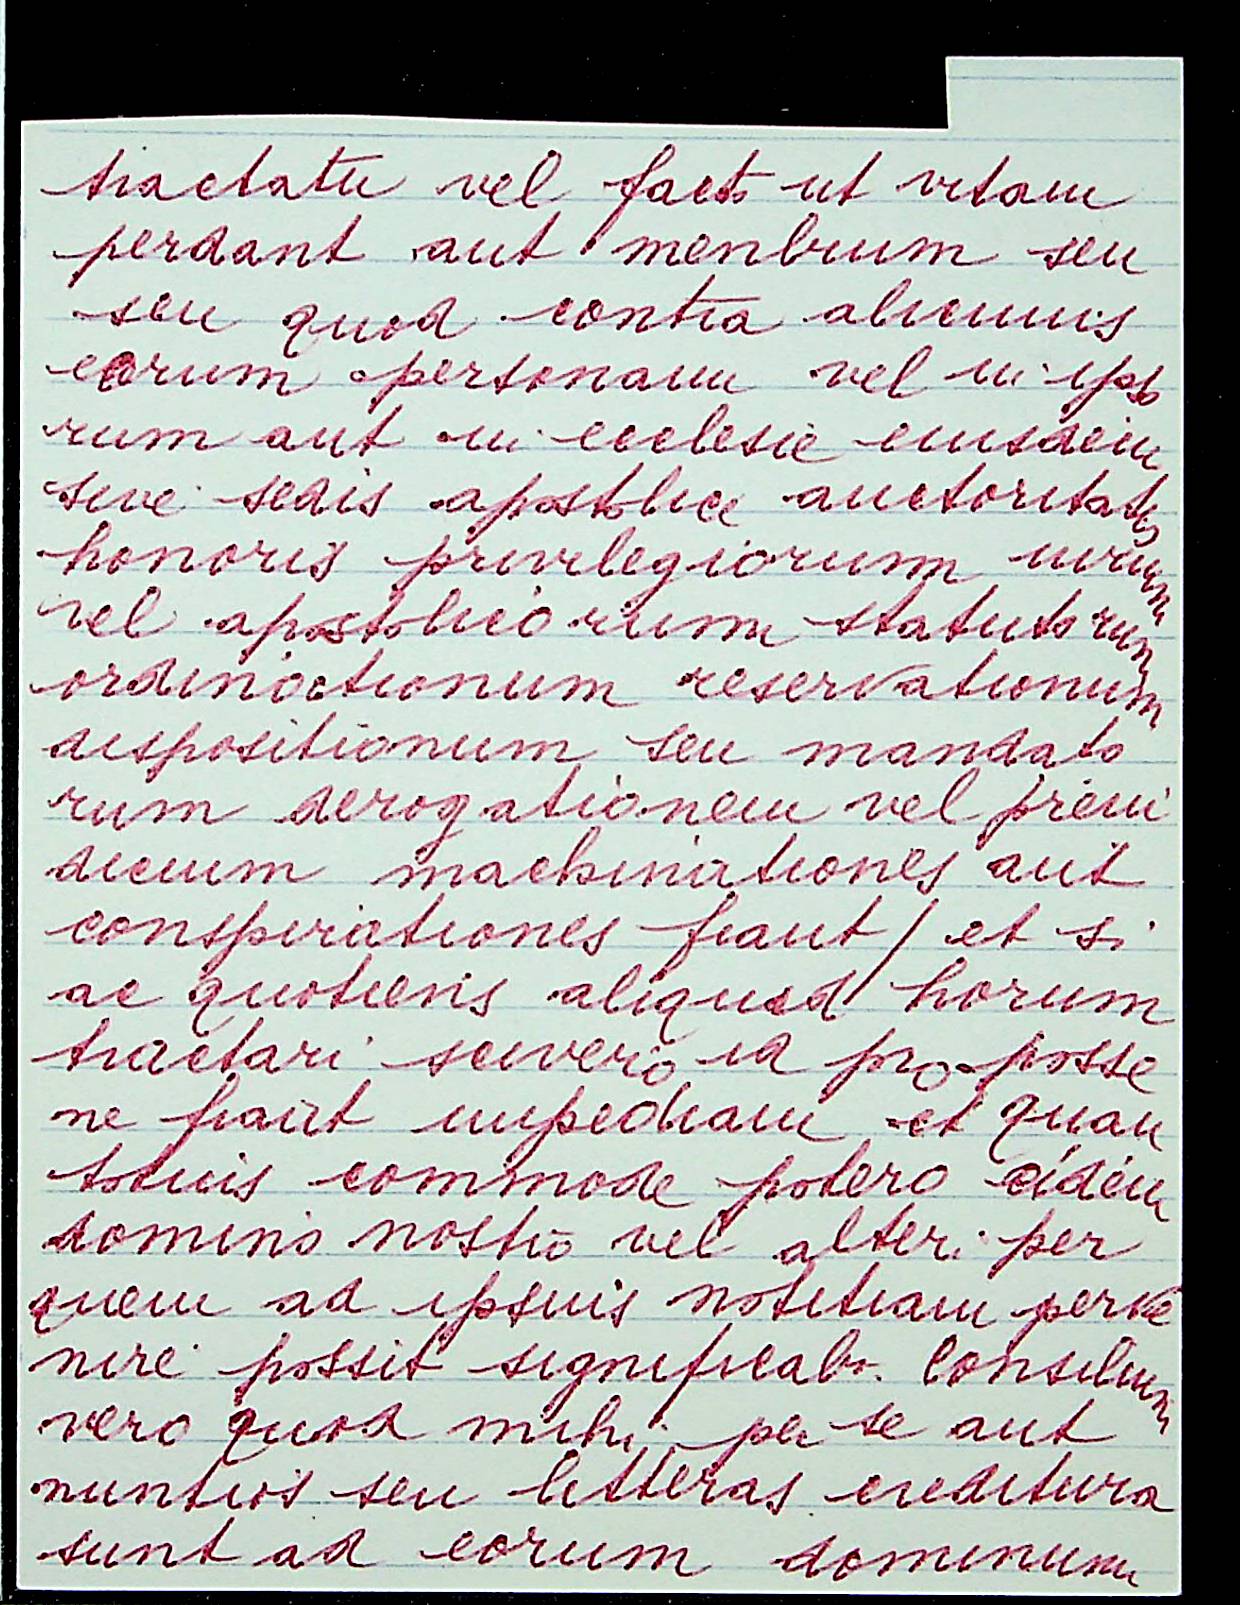 tractatu vel facto ut vitam
perdant aut menbrum seu
seu quod contra alicuius
eorum personam vel in ipso
rum aut in ecclesie eiusdem
sive sedis apostolice auctoritatis
honoris privilegiorum iurium
vel apostolicorum statutorum
ordinactionum reservationum
dispositionum seu mandato
rum derogationem vel preiu
dicium machinationes aut
conspirationes fiant / et si
ac quotiens aliquid horum
tractari scivero id pro posse
ne fiant impediam et quan
totius commode potero eidem
domino nostro vel alteri per
quem ad ipsius notitiam perve
nire possit significabo. Consilium
vero quod mihi per se aut
nuntios seu litteras creditura
sunt ad eorum dominum